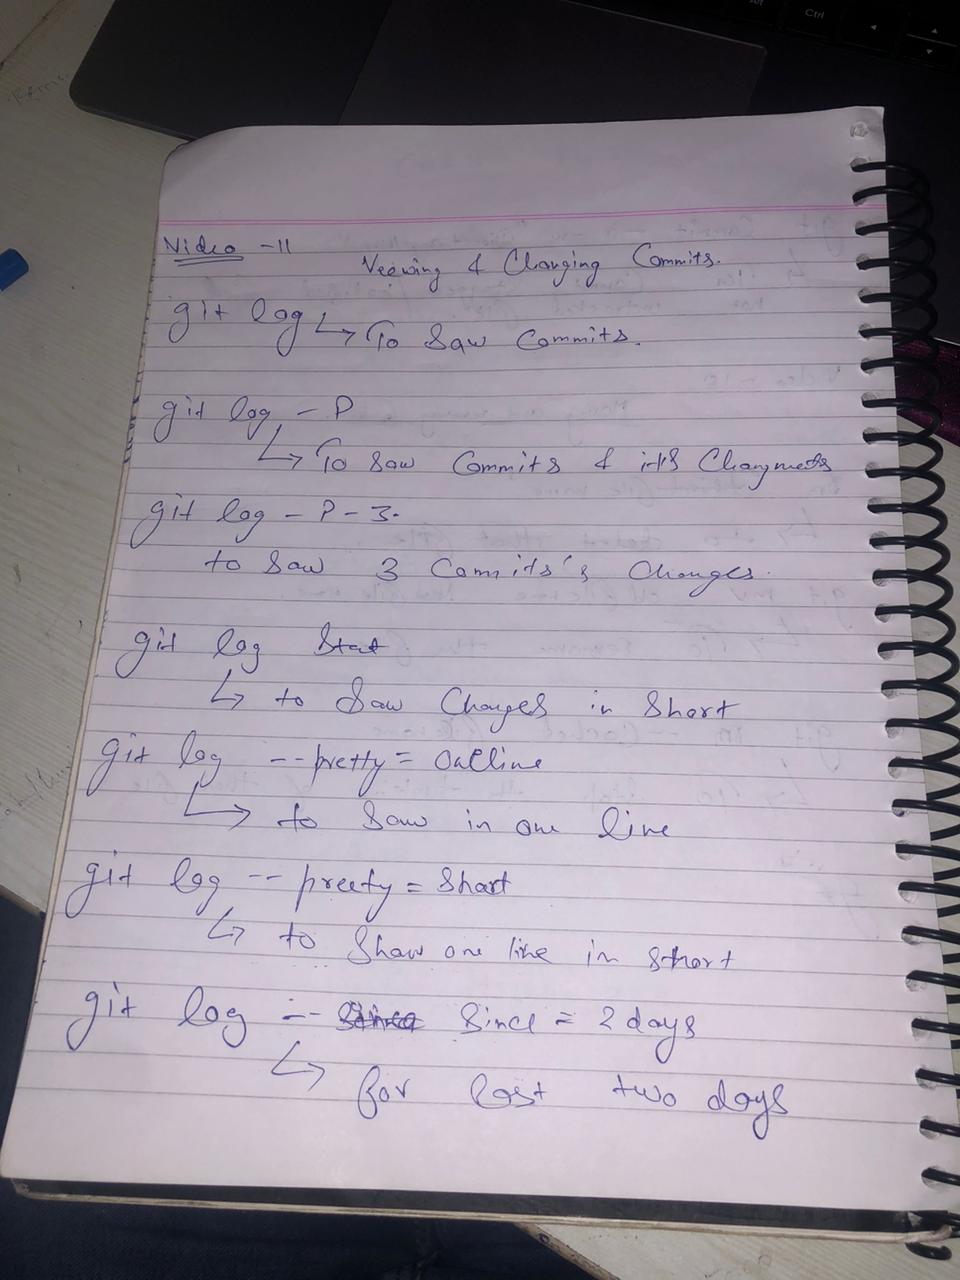 Video -11
Veewing & Changing Commits.
git log
↳ To Saw Commits.
git log - P
↳ To Saw Commits & it's Changmets
git log - P - 3.
to Saw 3 Commits's Changes.
git log Stat
↳ to Saw Changes in Short
git log --pretty = Online
↳ to Saw in one line
git log -- preety = Short
↳ to Show one line in Short
git log -- Since = 2 days
↳ for last two days
Ctrl